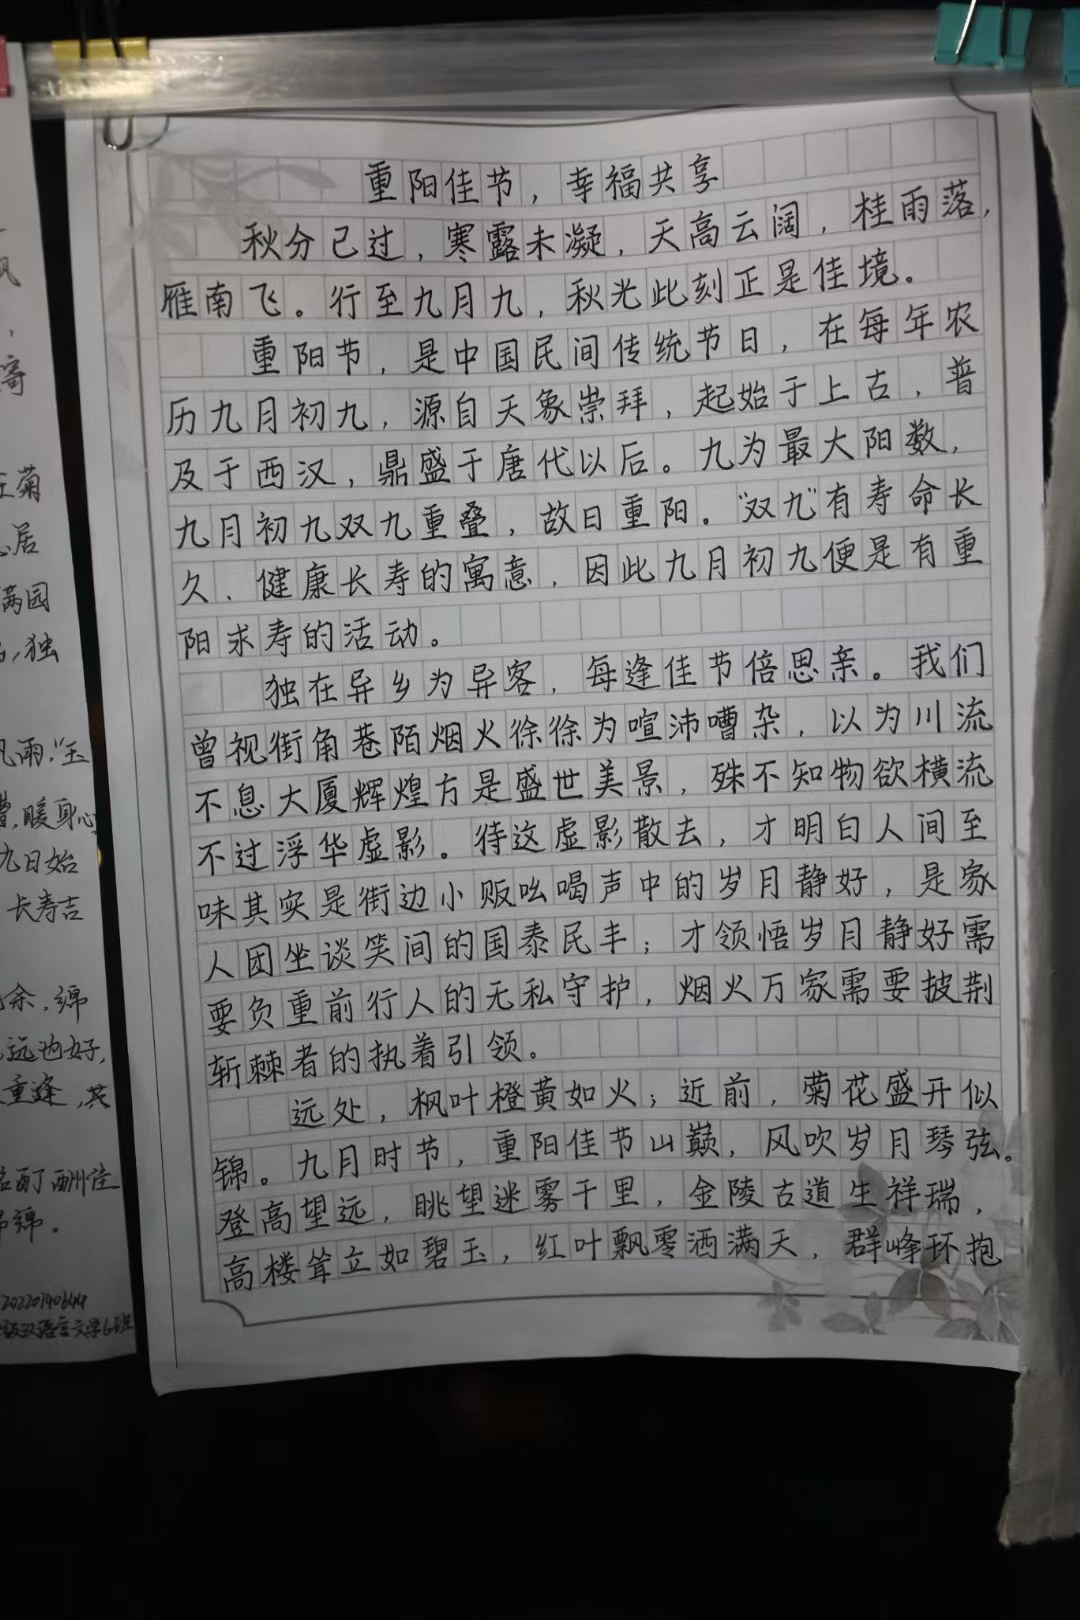 重阳佳节，幸福共享
秋分已过，寒露未凝，天高云阔，桂雨落，
雁南飞。行至九月九，秋光此刻正是佳境。
重阳节，是中国民间传统节日，在每年农
历九月初九，源自天象崇拜，起始于上古，普
及于西汉，鼎盛于唐代以后。九为最大阳数，
九月初九双九重叠，故曰重阳。“双九”有寿命长
久、健康长寿的寓意，因此九月初九便是有重
阳求寿的活动。
独在异乡为异客，每逢佳节倍思亲。我们
曾视街角巷陌烟火徐徐为喧沸嘈杂，以为川流
不息大厦辉煌方是盛世美景，殊不知物欲横流
不过浮华虚影。待这虚影散去，才明白人间至
味其实是街边小贩吆喝声中的岁月静好，是家
人团坐谈笑间的国泰民丰；才领悟岁月静好需
要负重前行人的无私守护，烟火万家需要披荆
斩棘者的执着引领。
远处，枫叶橙黄如火；近前，菊花盛开似
锦。九月时节，重阳佳节山巅，风吹岁月琴弦。
登高望远，眺望迷雾千里，金陵古道生祥瑞，
高楼耸立如碧玉，红叶飘零洒满天，群峰环抱
风
，
寄
菊
居
满园
，独
风雨，“玉
，暖身心
九日始
长寿吉
余，绵
远也好，
重逢，共
酊酬佳
绵。
汉语言文学6班